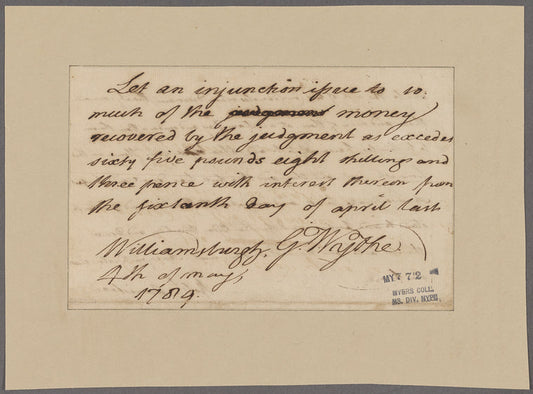 Let an injunction issue to so
much of the judgment money
recovered by the judgment as excedes
sixty five pounds eight shillings and
three pence with interest thereon from
the sixteenth day of april last
Williamsburgh, G. Wythe
4th of may,
1789.
MY 7 72
MYERS COLL.
MS. DIV. NYPL